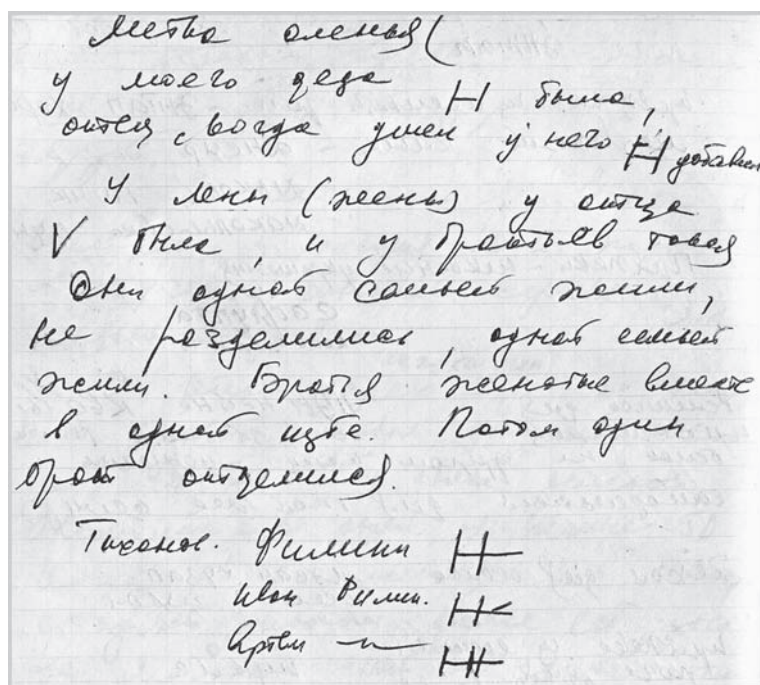 Метка оленья (
у моего деда H была,
отец, когда ушел у него H добавил
У Лены (жены) у отца
V была, и у братьев такая
Они одной семьей жили,
не разделились, одной семьей
жили. Братья женатые вместе
в одной избе. Потом один
брат отделился.
Тихонов. Филипп
Иван Филип.
Артем